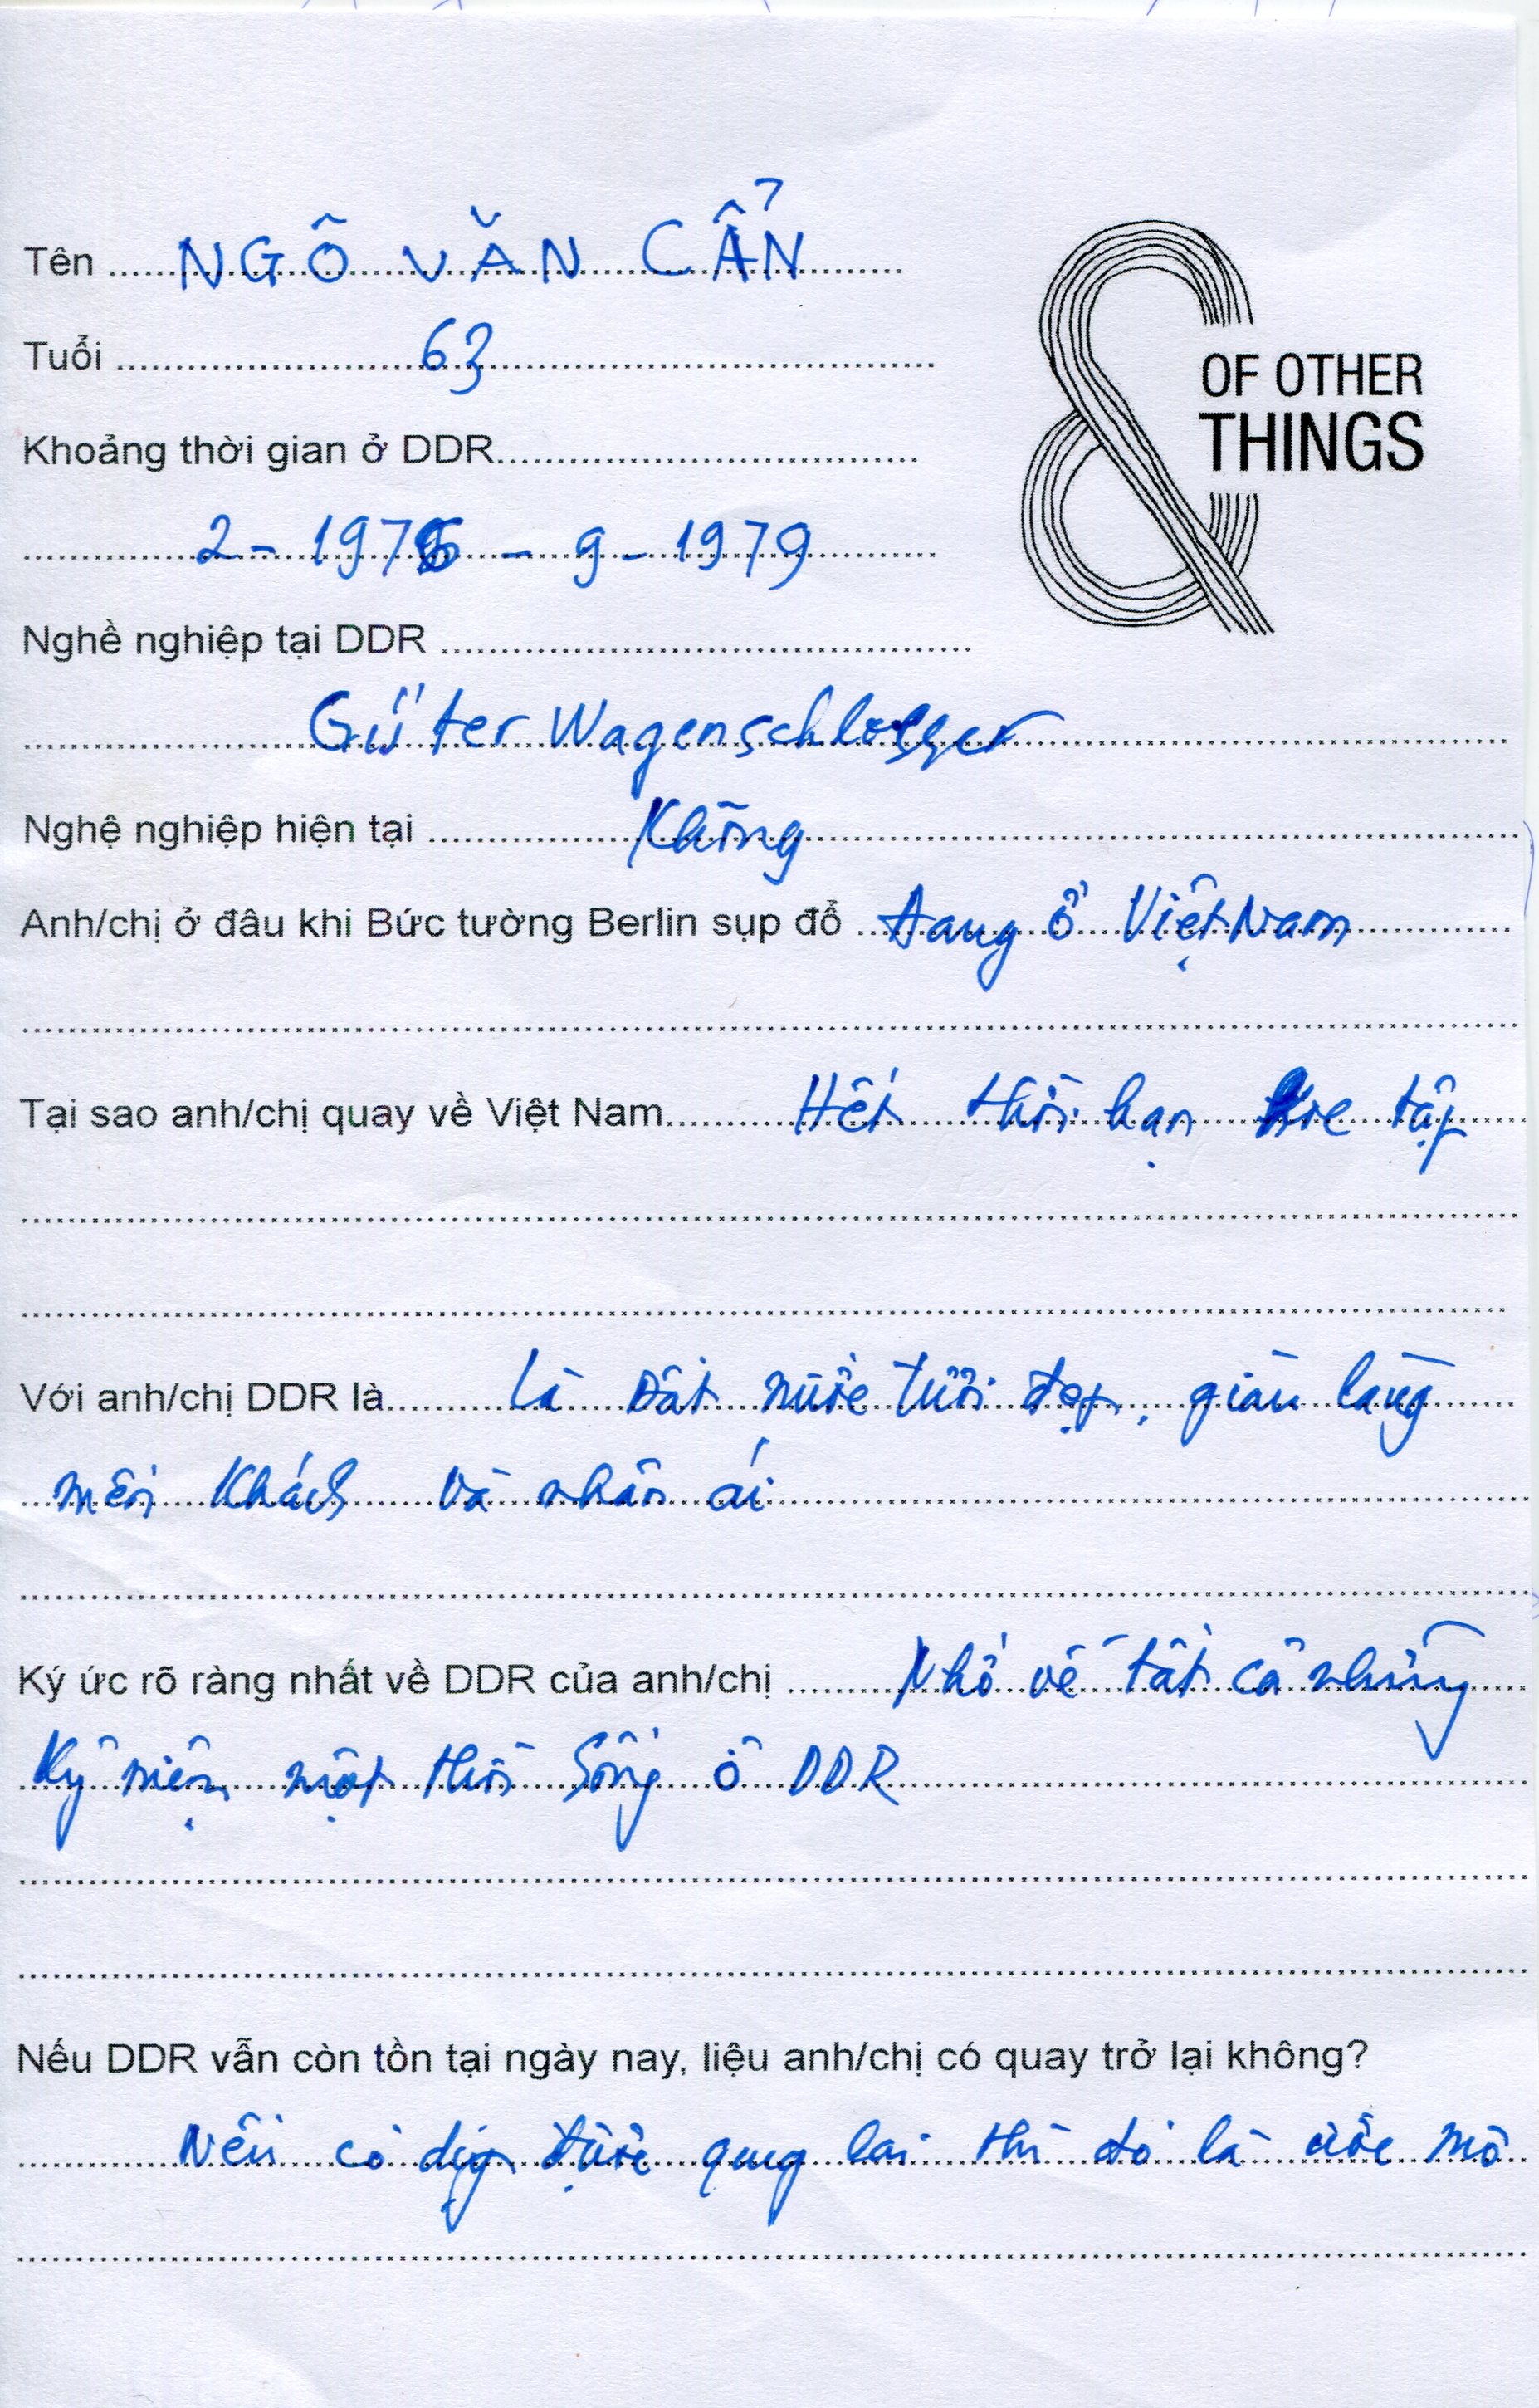 Tên NGÔ VĂN CẨN
Tuổi 63
OF OTHER
THINGS
Khoảng thời gian ở DDR
2 - 1976 - 9 - 1979
Nghề nghiệp tại DDR
Güter Wagenschlosser
Nghệ nghiệp hiện tại Không
Anh/chị ở đâu khi Bức tường Berlin sụp đổ Đang ở Việt Nam
Tại sao anh/chị quay về Việt Nam Hết thời hạn học tập
Với anh/chị DDR là Là Đất nước tươi đẹp, giàu lòng
mến Khách và nhân ái
Ký ức rõ ràng nhất về DDR của anh/chị Nhớ về tất cả những
Kỷ niệm một thời Sống ở DDR
Nếu DDR vẫn còn tồn tại ngày nay, liệu anh/chị có quay trở lại không?
Nếu có dịp được quay lại thì đó là ước mơ